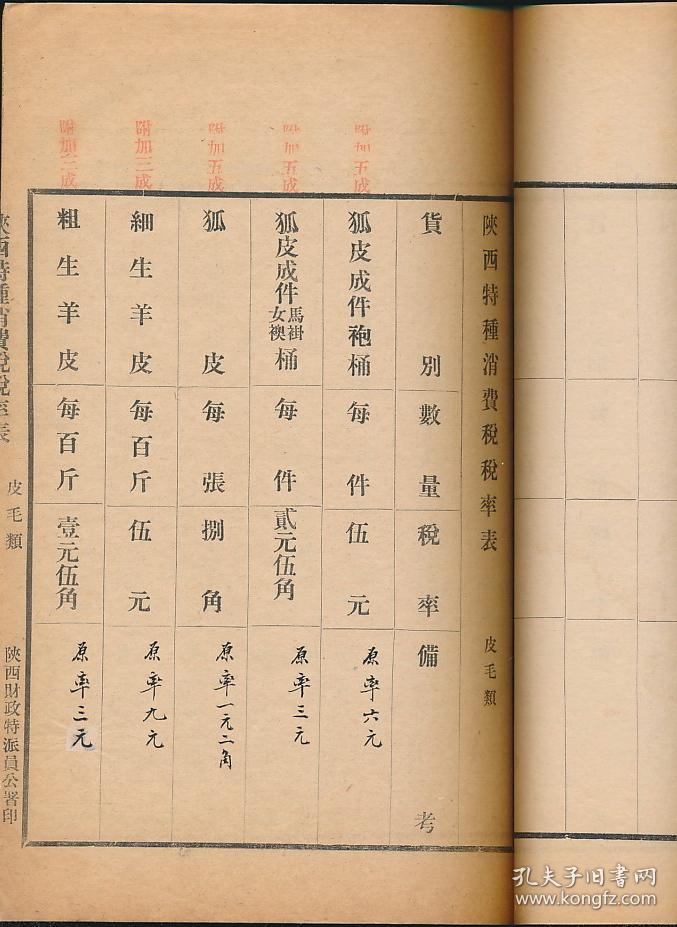 陝西特種消費稅稅率表 皮毛類
貨別 數量 稅率 備考
附加五成
狐皮成件袍桶 每件 伍元 原率六元
附加五成
狐皮成件馬褂女襖桶 每件 貳元伍角 原率三元
附加五成
狐皮 每張 捌角 原率一元二角
附加三成
細生羊皮 每百斤 伍元 原率九元
附加三成
粗生羊皮 每百斤 壹元伍角 原率三元
陝西特種消費稅稅率表 皮毛類 陝西財政特派員公署印
孔夫子旧书网
www.kongfz.com